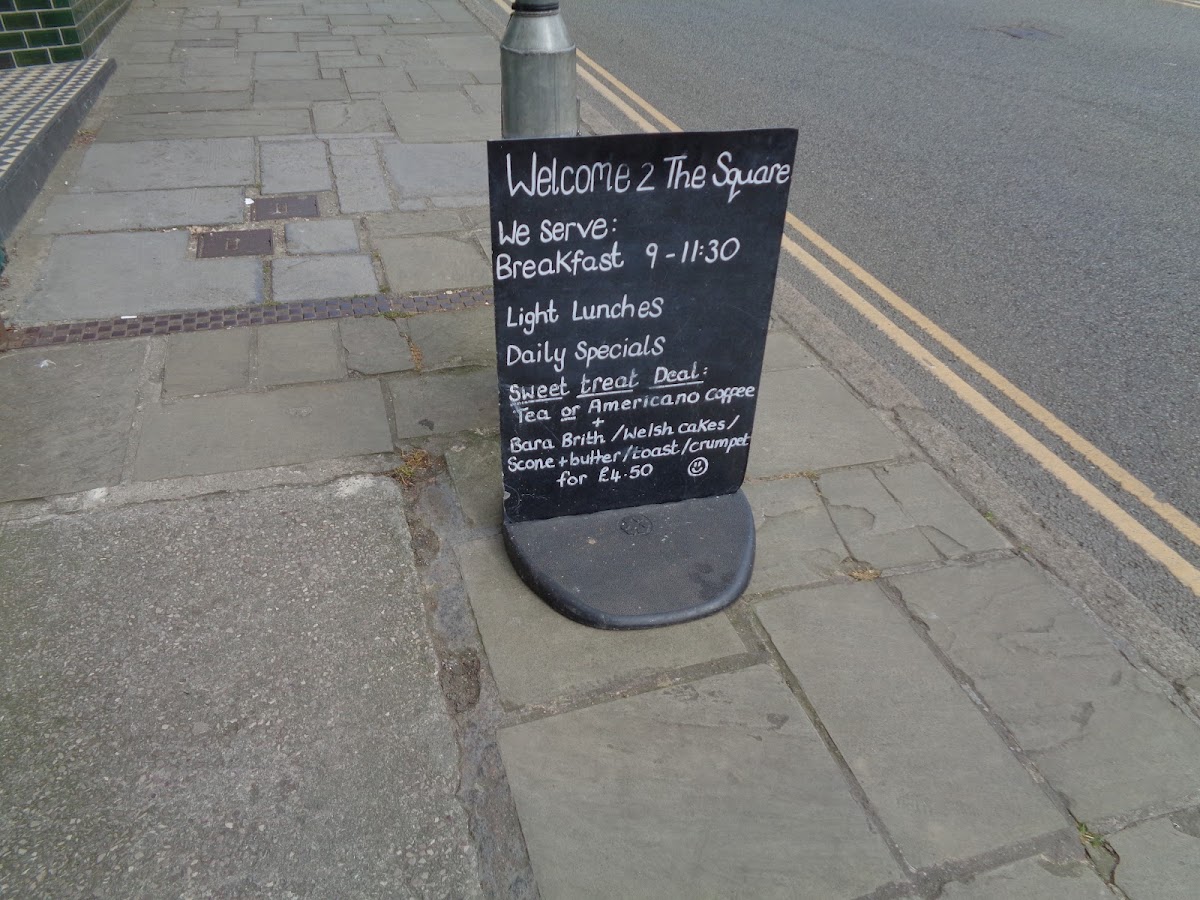 Welcome 2 The Square
We serve:
Breakfast 9-11:30
Light Lunches
Daily Specials
Sweet treat Deal:
Tea or Americano coffee
+
Bara Brith/Welsh cakes/
Scone+butter/toast/crumpet
for £4.50